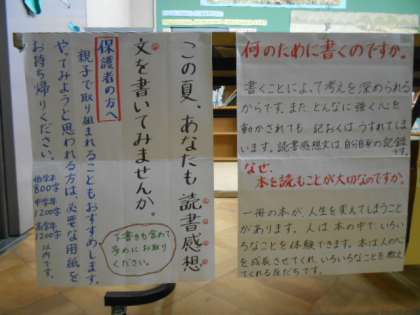 この夏、あなたも読書感想
文を書いてみませんか。
保護者の方へ
親子で取り組まれることもおすすめします。
やってみようと思われる方は、必要な用紙を
お持ち帰りください。
低学年
800字
中学年
1200字
高学年
1200字
以内です。
下書きも含めて
多めにお取り
ください。
何のために書くのですか。
書くことによって考えを深められる
からです。また、どんなに強く心を
動かされても、記おくはうすれてしま
います。読書感想文は自分自身の記録
です。
なぜ、
本を読むことが大切なのですか。
一冊の本が、人生を変えてしまうこと
があります。人は本の中でいろい
ろなことを体験できます。本は人の心
を成長させてくれ、いろいろなことを教え
てくれる友だちです。